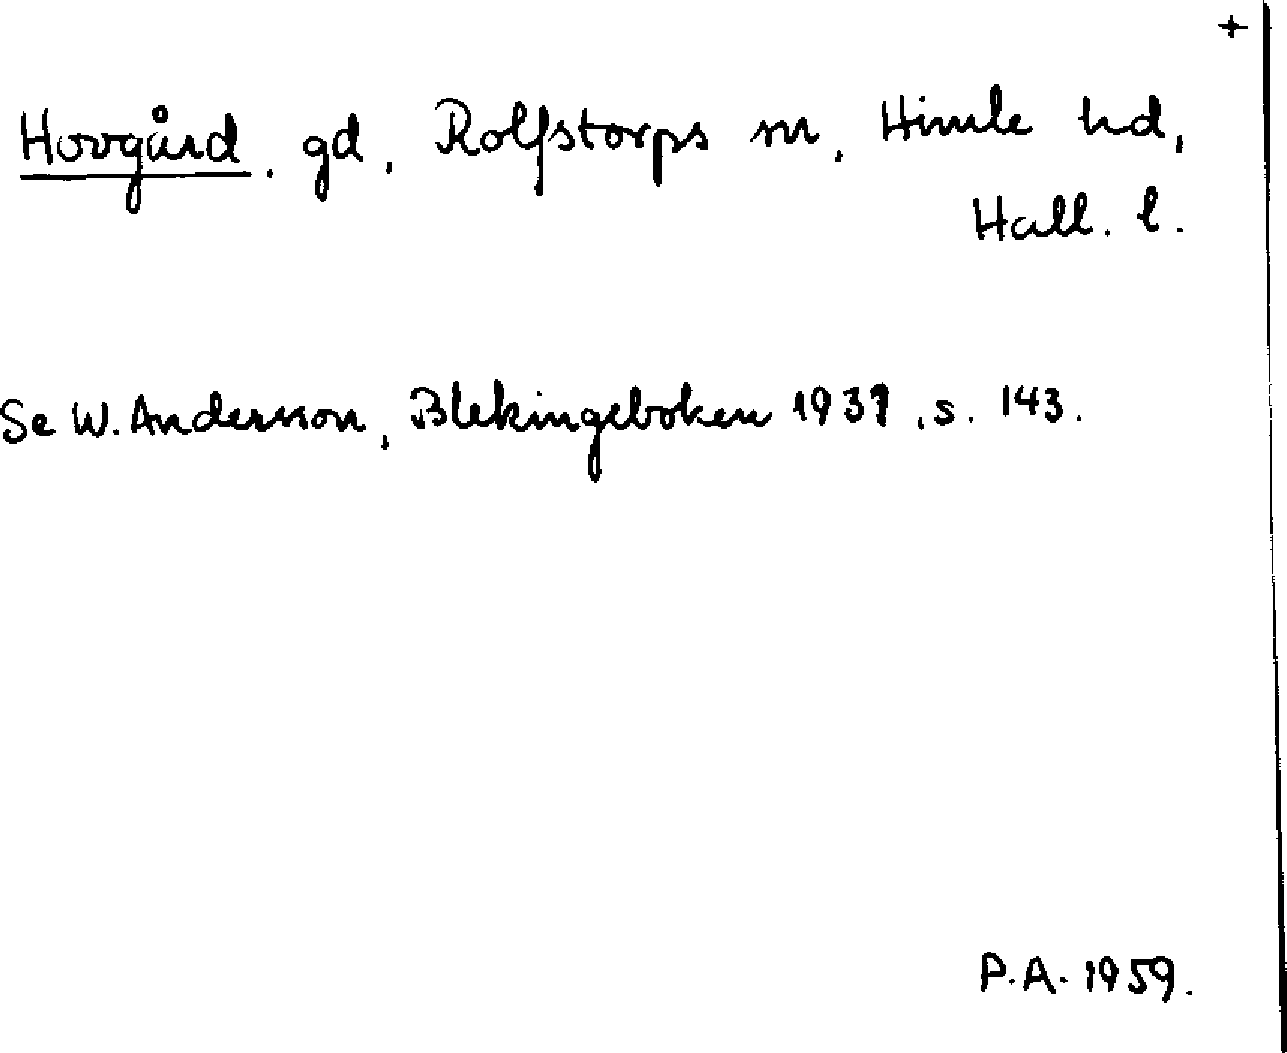 +
Hovgård, gd, Rolfstorps sn, Himle hd,
Hall. l.
Se W. Andersson, Blekingeboken 1937, s. 143.
P.A. 1959.